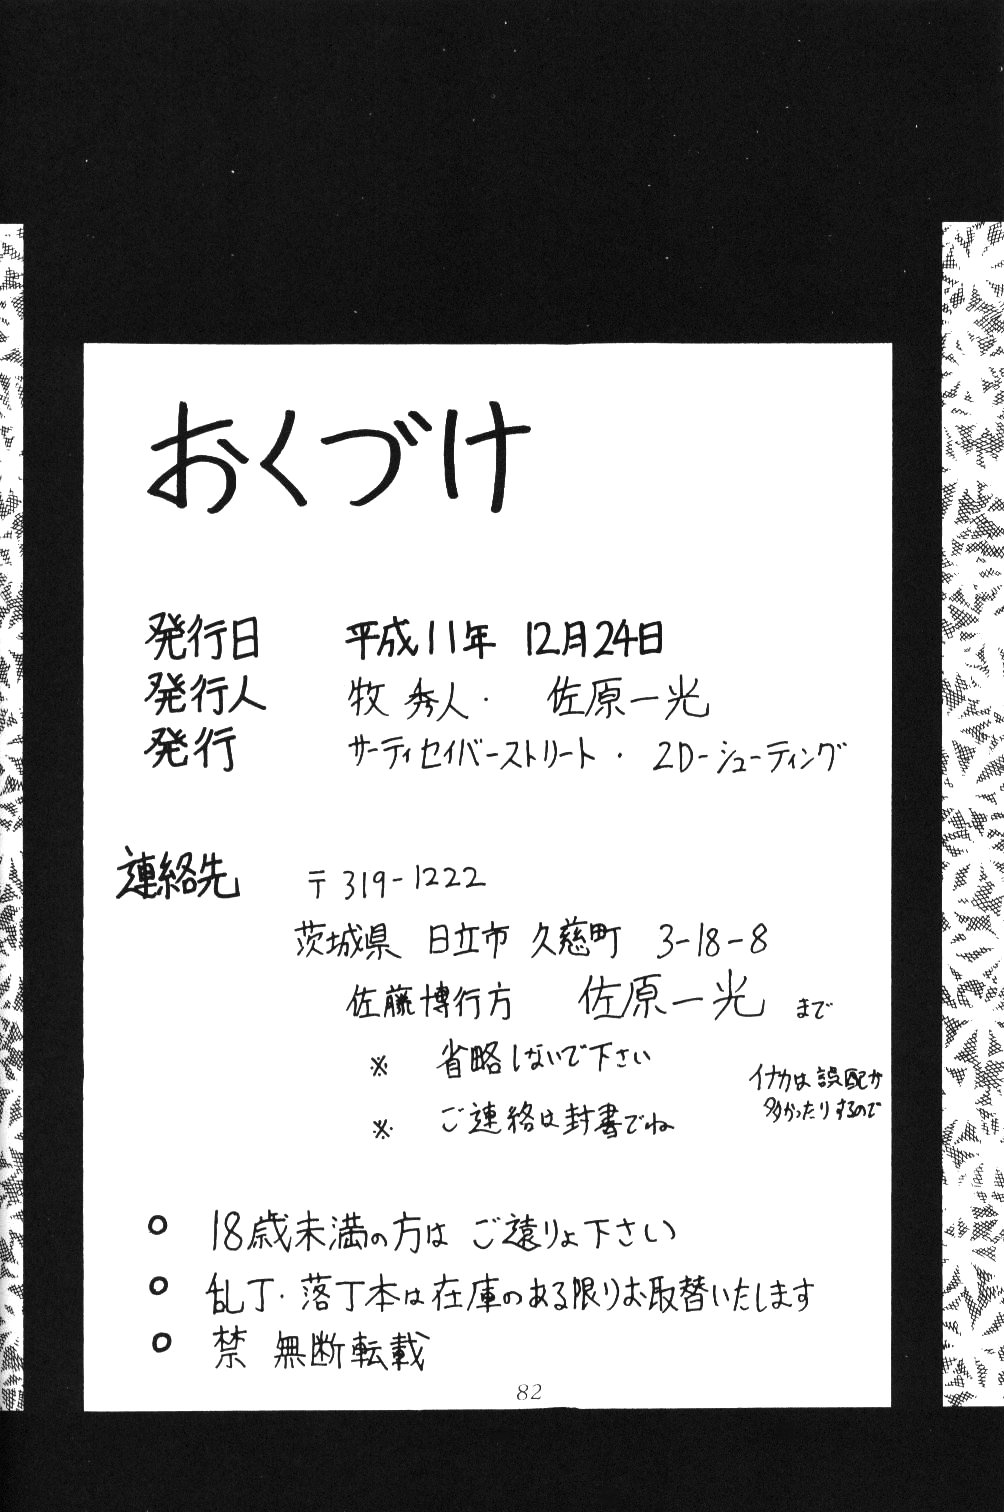 おくづけ
発行日　平成11年 12月24日
発行人　牧 秀人・ 佐原一光
発行　サーティセイバーストリート ・ 2D-シューティング
連絡先　〒319-1222
茨城県 日立市 久慈町 3-18-8
佐藤博行方 佐原一光 まで
※ 省略しないで下さい
イナカは誤配が
多かったりするので
※ ご連絡は封書でね
○ 18歳未満の方は ご遠りょ下さい
○ 乱丁・落丁本は在庫のある限りお取替いたします
○ 禁 無断転載
82